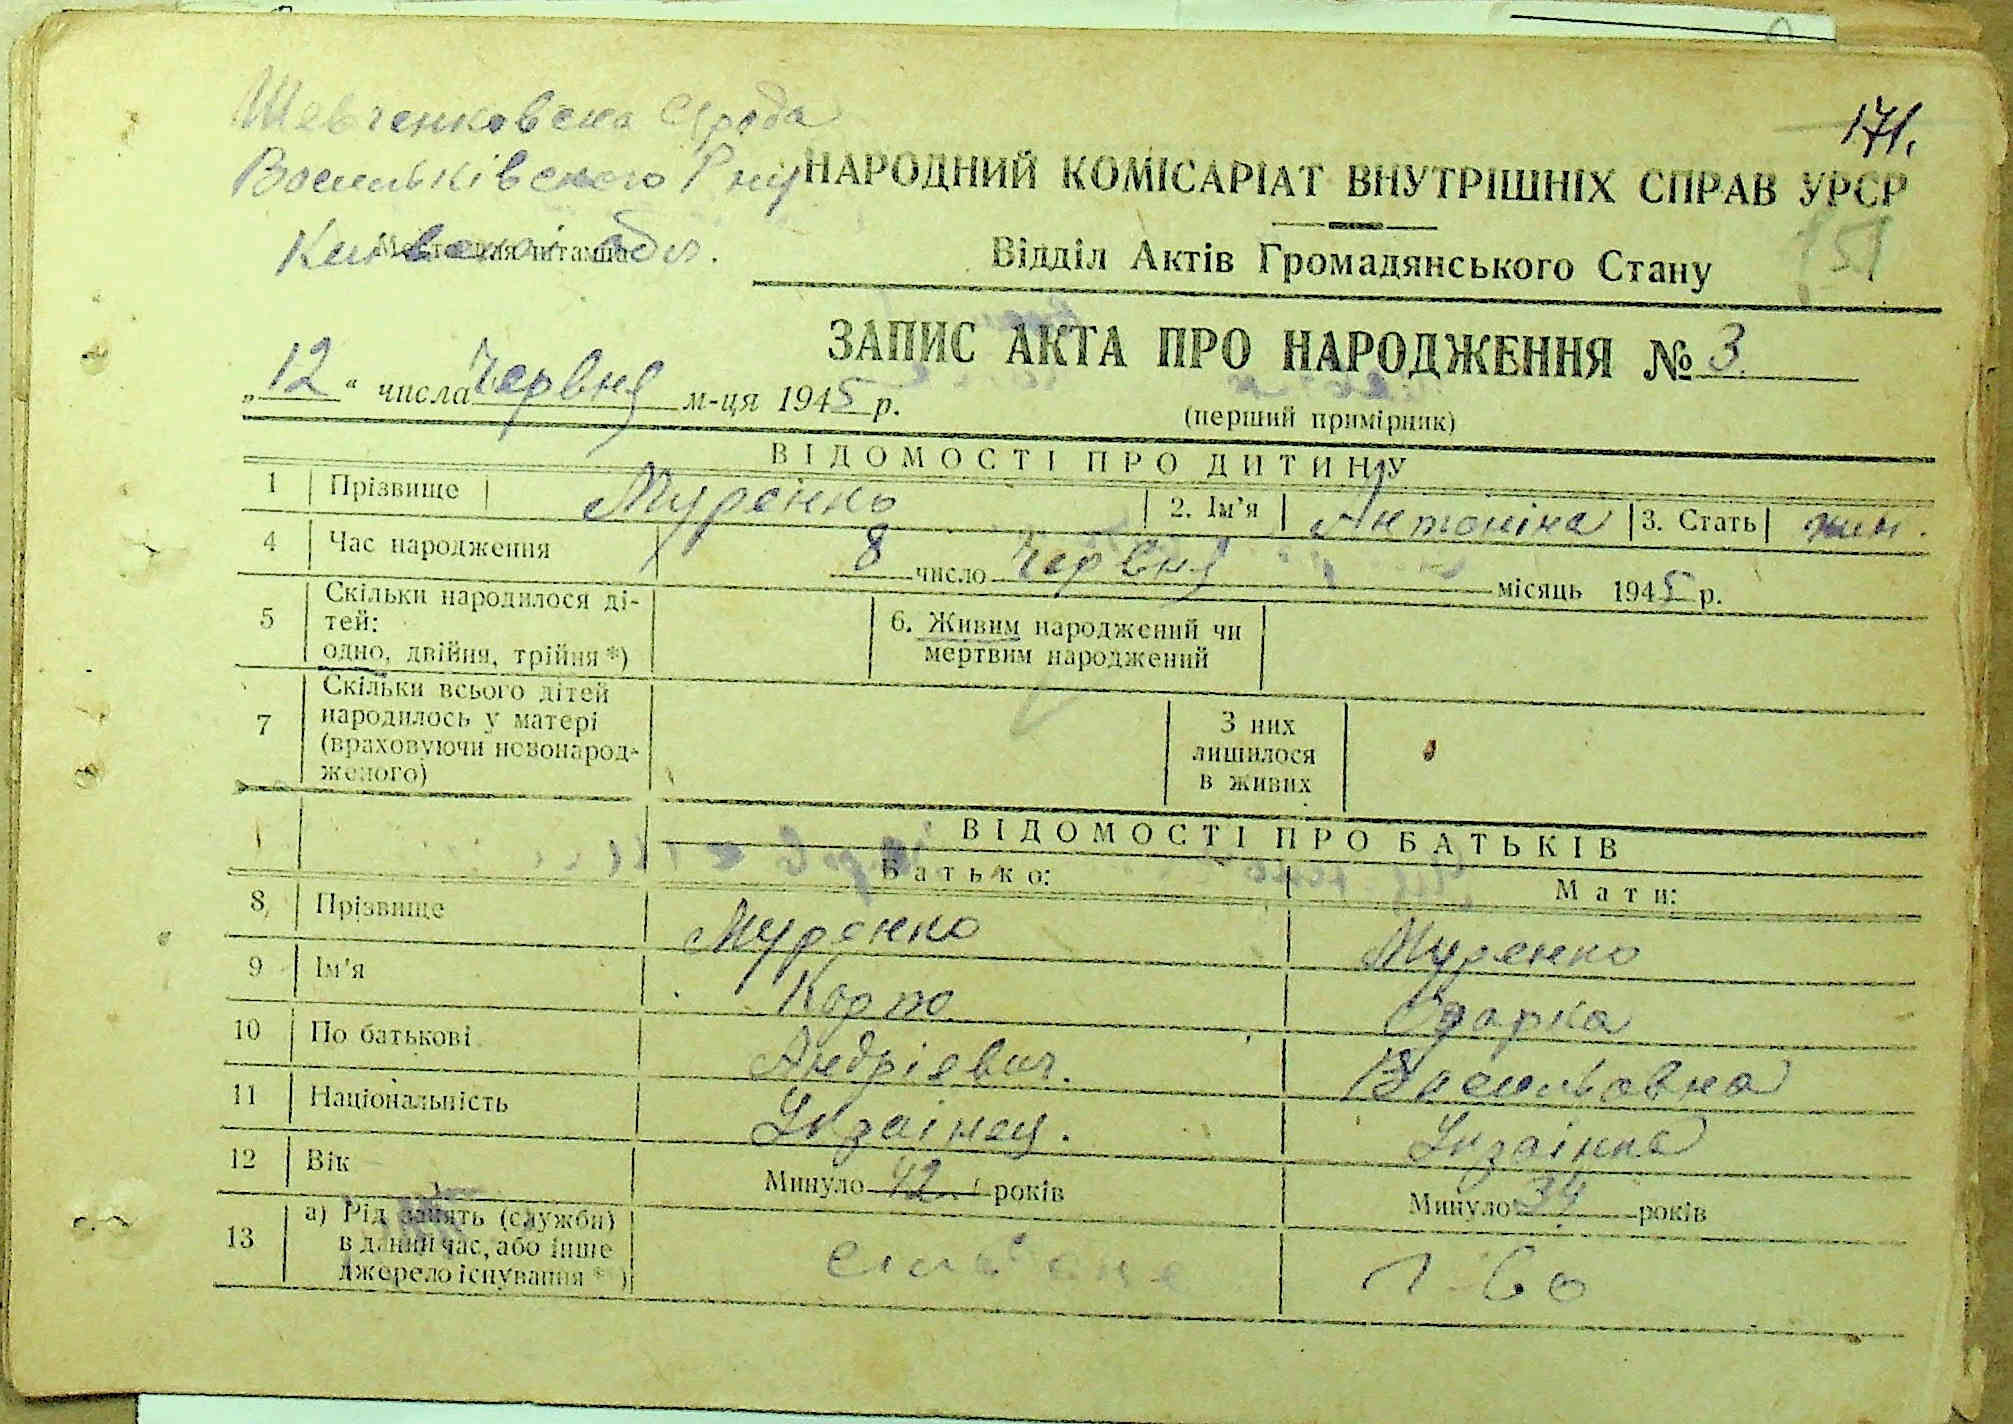 171.
Шевченковска срада
Васильківського Р-ну
Київської обл.
Мастичная штампа
НАРОДНИЙ КОМІСАРІАТ ВНУТРІШНІХ СПРАВ УРСР
151
Відділ Актів Громадянського Стану
ЗАПИС АКТА ПРО НАРОДЖЕННЯ № 3.
„12“ числа Червня м-ця 1945 р.
(перший примірник)
ВІДОМОСТІ ПРО ДИТИНУ
1 Прізвище Муренко 2. Ім'я Антоніна 3. Стать жін.
4 Час народження 8 число Червня місяць 1945 р.
5 Скільки народилося ді-
тей:
одно, двійня, трійня *)
6. Живим народжений чи
мертвим народжений
7 Скільки всього дітей
народилось у матері
(враховуючи новонарод-
женого)
З них
лишилося
в живих
ВІДОМОСТІ ПРО БАТЬКІВ
Батько: Мати:
8 Прізвище Муренко Муренко
9 Ім'я Карпо Одарка
10 По батькові Андрієвич. Васильовна
11 Національність Українец. Українка
12 Вік Минуло 42 років Минуло 34 років
13 а) Рід занять (служби)
в даний час, або інше
джерело існування *)